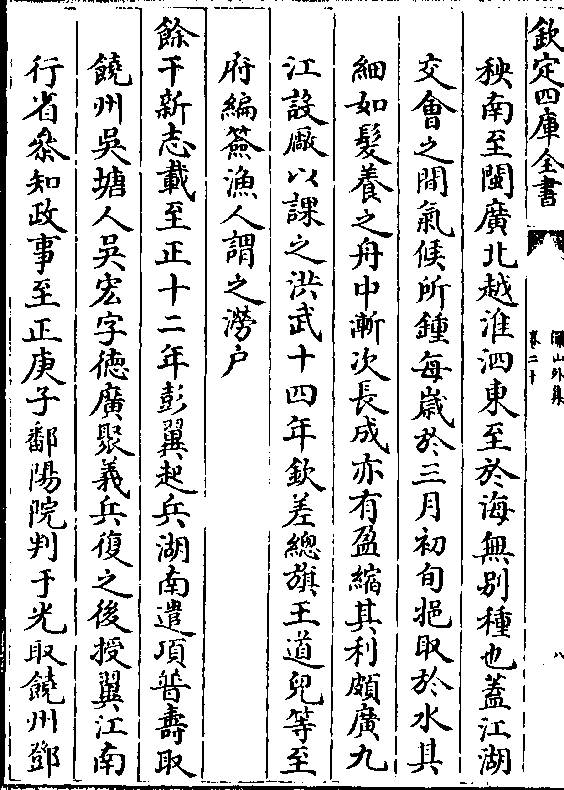 欽定四庫全書
山外集
卷二十
八
秧南至閩廣北越淮泗東至於海無別種也蓋江湖
交會之間氣候所鍾每歲於三月初旬挹取於水具
細如髮養之舟中漸次長成亦有盈縮其利頗廣九
江設廠以課之洪武十四年欽差總旗王道兒等至
府編簽漁人謂之澇户
餘干新志載至正十二年彭翼起兵湖南遣項普壽取
饒州吳塘人吳宏字徳廣聚義兵復之後授翼江南
行省叅知政事至正庚子鄱陽院判于光取饒州鄧